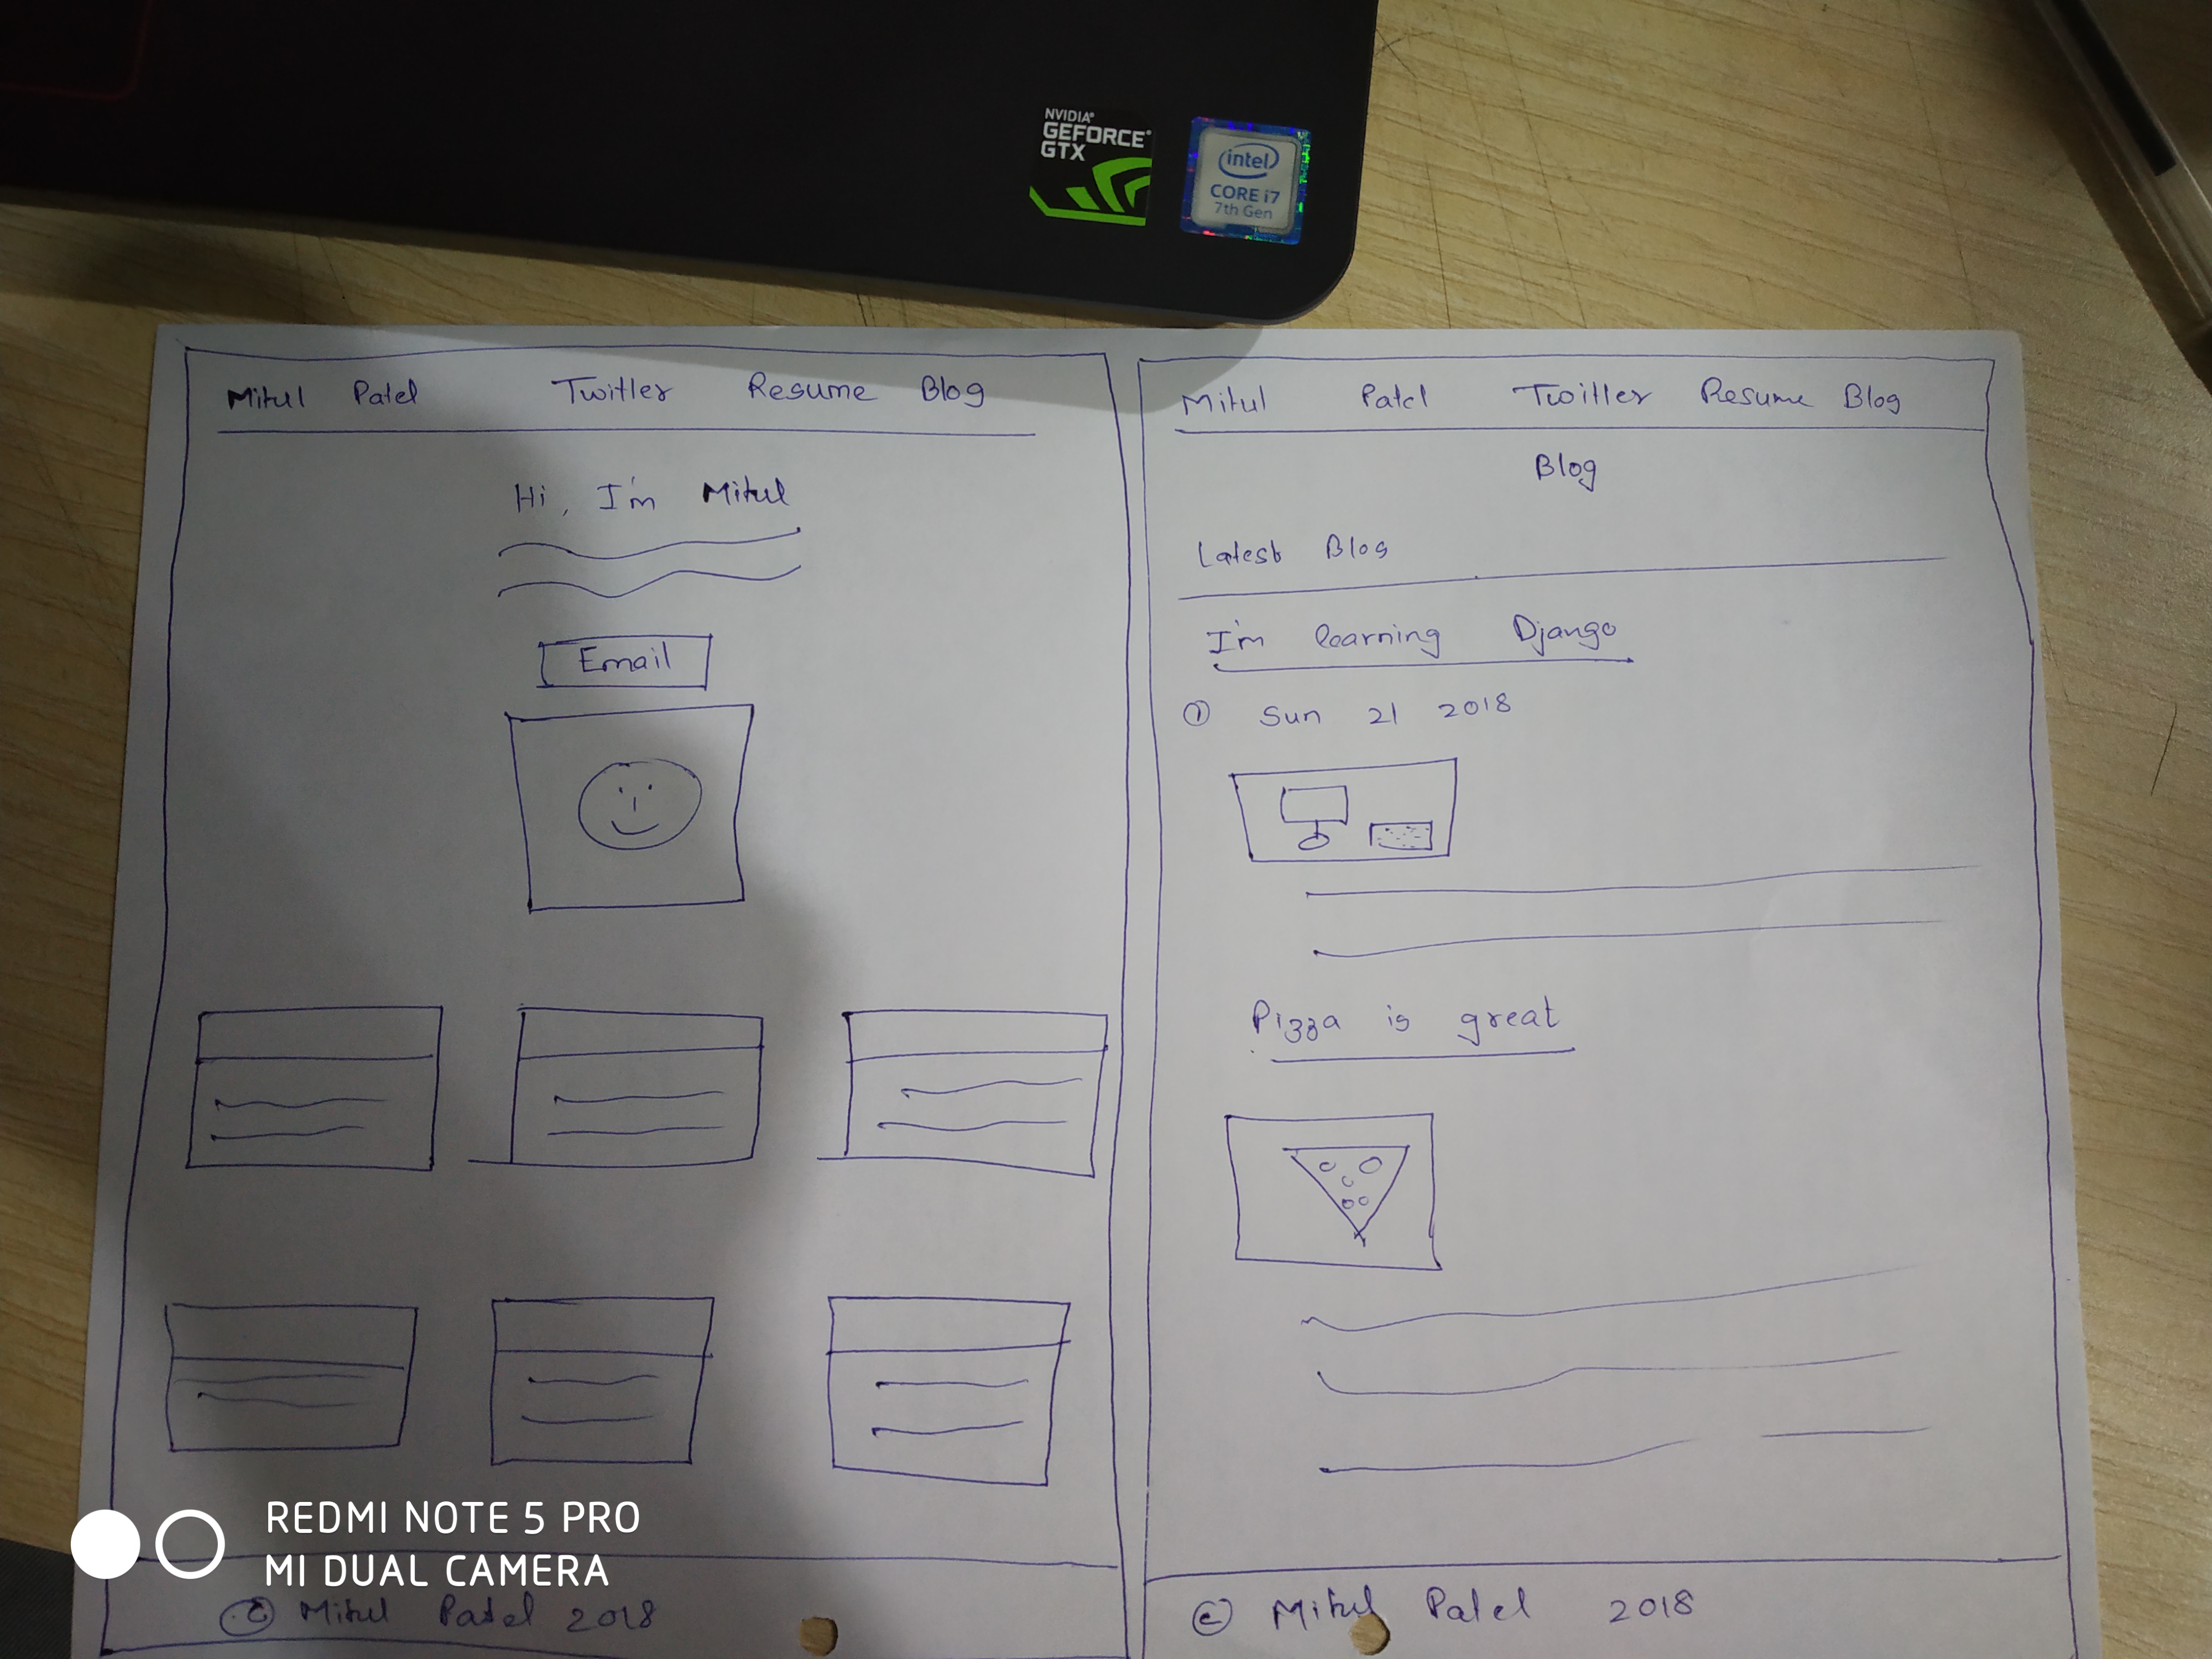 NVIDIA®
GEFORCE®
GTX
intel
CORE i7
7th Gen
Mitul Patel Twitter Resume Blog
Hi, I'm Mitul
Email
© Mitul Patel 2018
Mitul Patel Twitter Resume Blog
Blog
Latest Blog
I'm learning Django
① Sun 21 2018
Pizza is great
© Mitul Patel 2018
REDMI NOTE 5 PRO
MI DUAL CAMERA